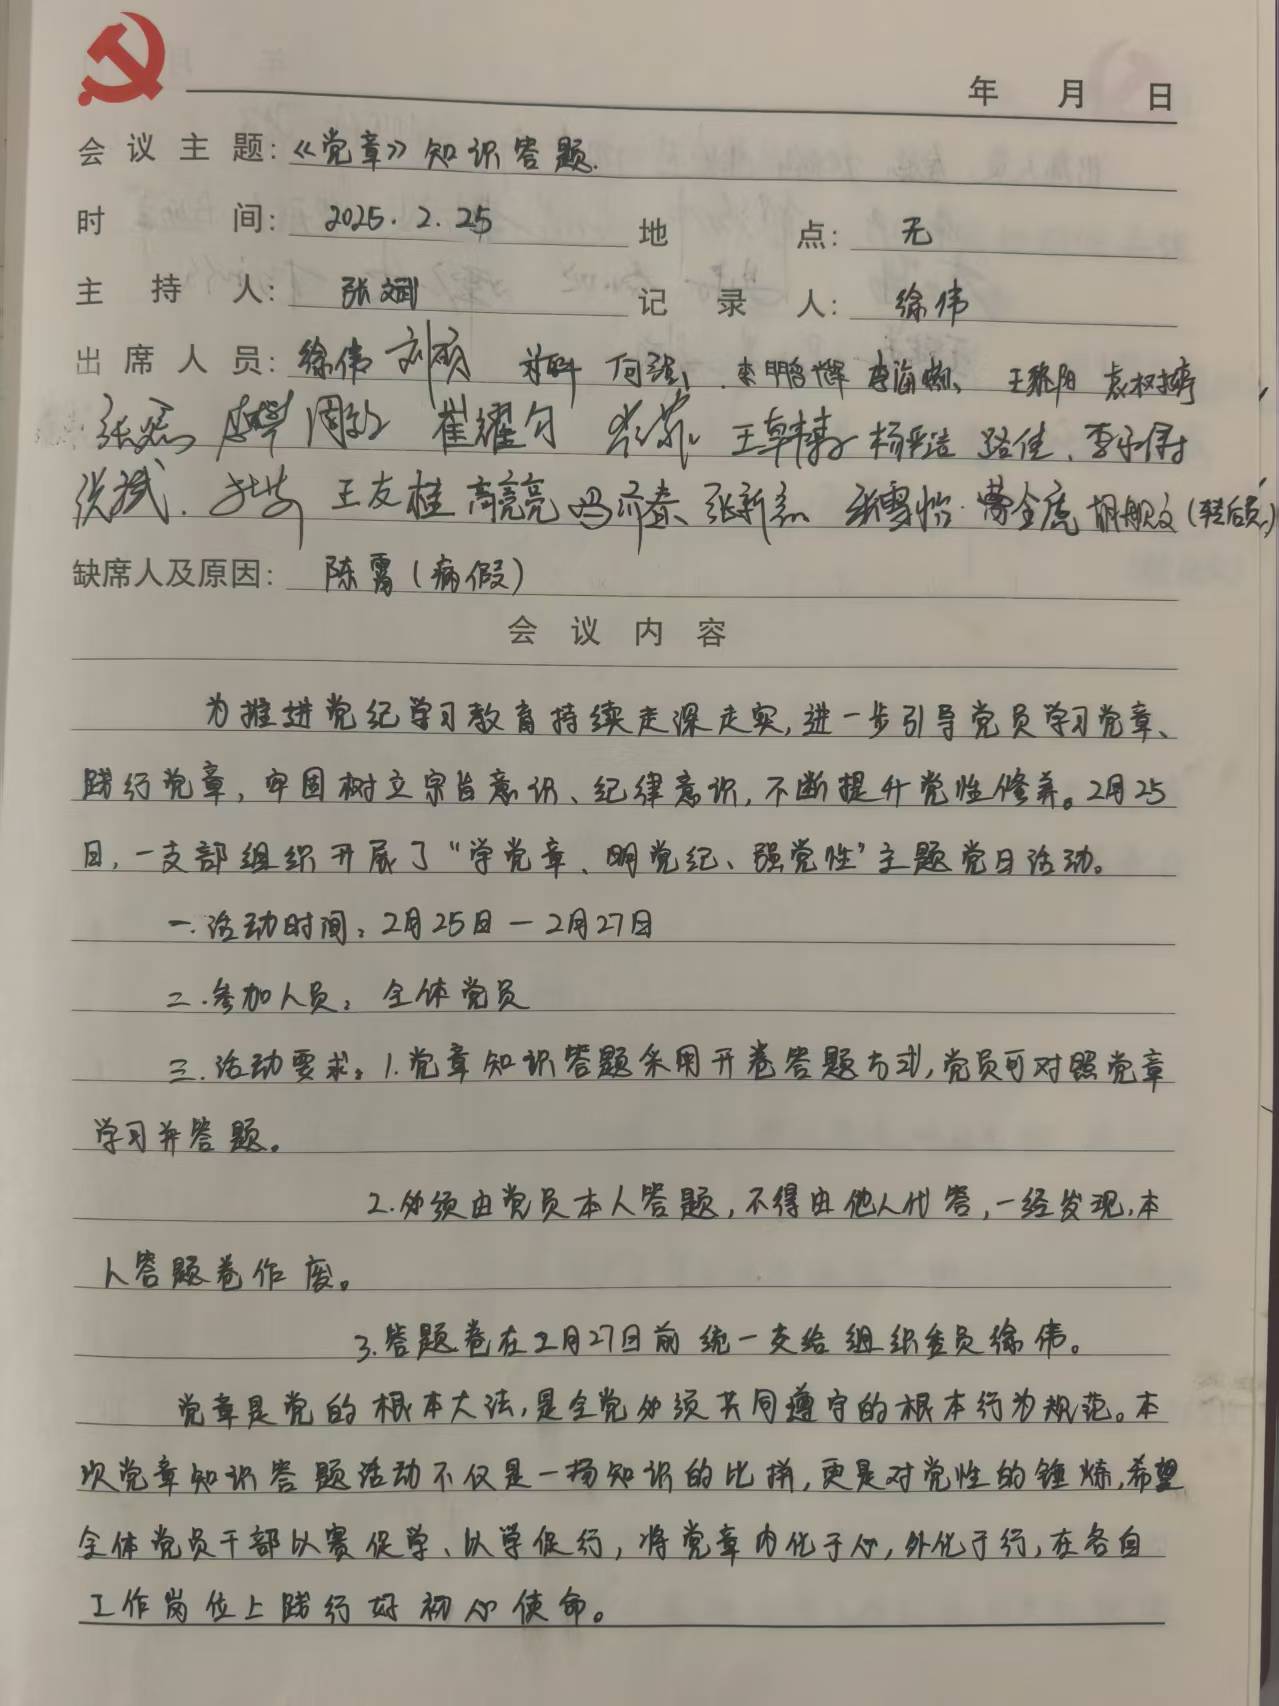 年 月 日
会议主题:《党章》知识答题.
时 间: 2025.2.25 地 点: 无
主 持 人: 张斌 记 录 人: 徐伟
出席人员: 徐伟 何强 李鹏辉 李海 王黎阳 袁权婷
张 周 崔耀匀 王草 杨 路佳
张斌. 王友桂 高亮亮 冯 张新 张雪怡 曹全虎 (转后勤)
缺席人及原因: 陈霄(病假)
会 议 内 容
为推进党纪学习教育持续走深走实,进一步引导党员学习党章、
践行党章,牢固树立宗旨意识、纪律意识,不断提升党性修养。2月25
日,一支部组织开展了“学党章、明党纪、强党性”主题党日活动。
一.活动时间:2月25日—2月27日
二.参加人员:全体党员
三.活动要求:1.党章知识答题采用开卷答题方式,党员可对照党章
学习并答题。
2.必须由党员本人答题,不得由他人代答,一经发现,本
人答题卷作废。
3.答题卷在2月27日前统一交给组织委员徐伟。
党章是党的根本大法,是全党必须共同遵守的根本行为规范。本
次党章知识答题活动不仅是一场知识的比拼,更是对党性的锤炼,希望
全体党员干部以赛促学、以学促行,将党章内化于心,外化于行,在各自
工作岗位上践行好初心使命。